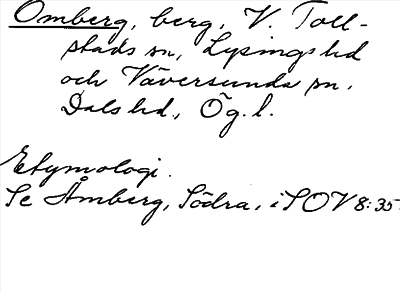 Omberg, berg, V. Toll-
stads sn, Lysings hd
och Väversunda sn,
Dals hd., Ög. l.
Etymologi.
Se Åmberg, Södra, i SOV 8:35.